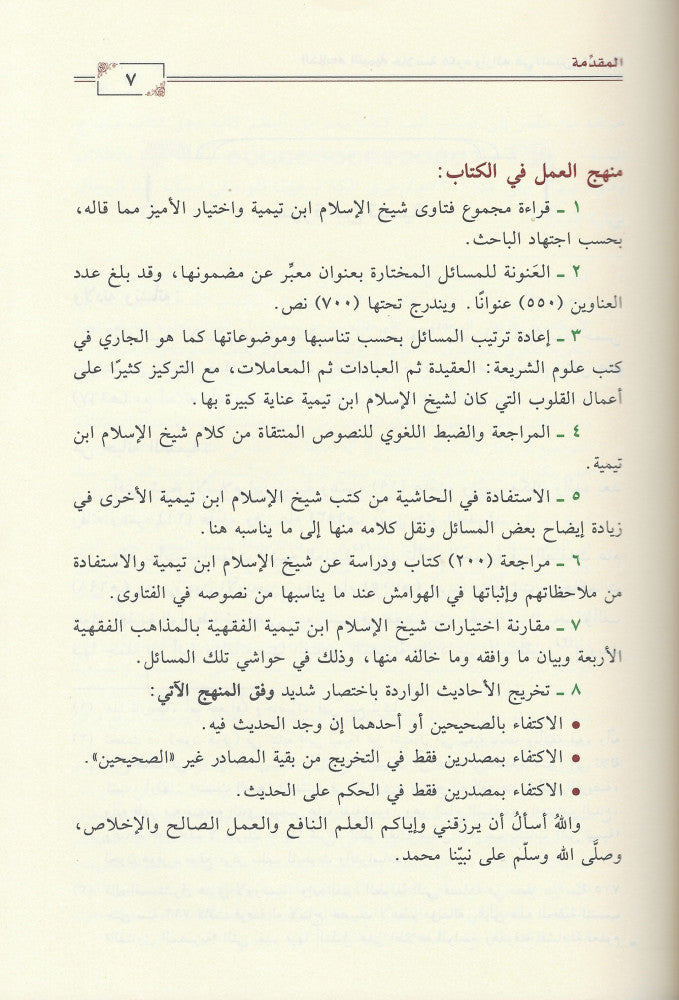 المقدِّمة
٧
منهج العمل في الكتاب:
١ ـ قراءة مجموع فتاوى شيخ الإسلام ابن تيمية واختيار الأميز مما قاله،
بحسب اجتهاد الباحث.
٢ ـ العَنونة للمسائل المختارة بعنوان معبِّر عن مضمونها، وقد بلغ عدد
العناوين (٥٥٠) عنوانًا. ويندرج تحتها (٧٠٠) نص.
٣ ـ إعادة ترتيب المسائل بحسب تناسبها وموضوعاتها كما هو الجاري في
كتب علوم الشريعة: العقيدة ثم العبادات ثم المعاملات، مع التركيز كثيرًا على
أعمال القلوب التي كان لشيخ الإسلام ابن تيمية عناية كبيرة بها.
٤ ـ المراجعة والضبط اللغوي للنصوص المنتقاة من كلام شيخ الإسلام ابن
تيمية.
٥ ـ الاستفادة في الحاشية من كتب شيخ الإسلام ابن تيمية الأخرى في
زيادة إيضاح بعض المسائل ونقل كلامه منها إلى ما يناسبه هنا.
٦ ـ مراجعة (٢٠٠) كتاب ودراسة عن شيخ الإسلام ابن تيمية والاستفادة
من ملاحظاتهم وإثباتها في الهوامش عند ما يناسبها من نصوصه في الفتاوى.
٧ ـ مقارنة اختيارات شيخ الإسلام ابن تيمية الفقهية بالمذاهب الفقهية
الأربعة وبيان ما وافقه وما خالفه منها، وذلك في حواشي تلك المسائل.
٨ ـ تخريج الأحاديث الواردة باختصار شديد وفق المنهج الآتي:
• الاكتفاء بالصحيحين أو أحدهما إن وجد الحديث فيه.
• الاكتفاء بمصدرين فقط في التخريج من بقية المصادر غير «الصحيحين».
• الاكتفاء بمصدرين فقط في الحكم على الحديث.
واللهُ أسألُ أن يرزقني وإياكم العلم النافع والعمل الصالح والإخلاص،
وصلَّى الله وسلّم على نبيّنا محمد.